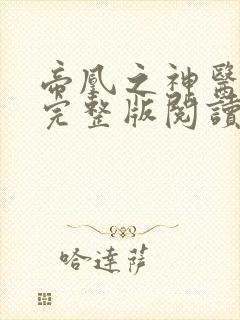 帝凰之神醫
完整版閱讀
哈達薩